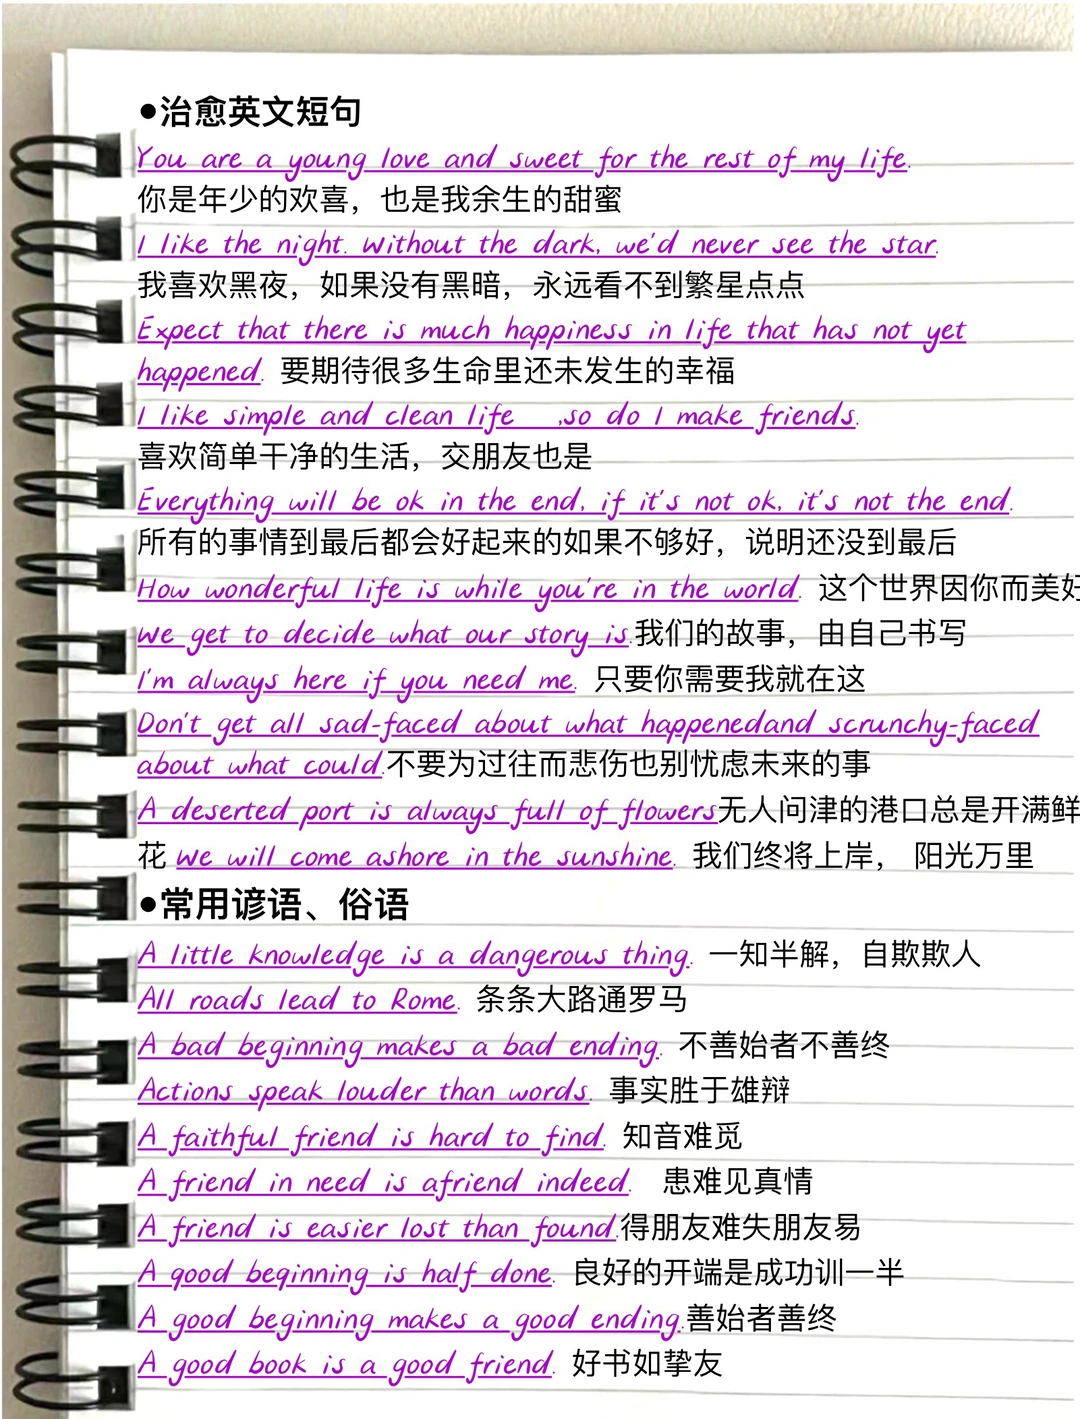 ●治愈英文短句
You are a young love and sweet for the rest of my life.
你是年少的欢喜，也是我余生的甜蜜
I like the night. Without the dark, we'd never see the star.
我喜欢黑夜，如果没有黑暗，永远看不到繁星点点
Expect that there is much happiness in life that has not yet
happened. 要期待很多生命里还未发生的幸福
I like simple and clean life ,so do I make friends.
喜欢简单干净的生活，交朋友也是
Everything will be ok in the end, if it's not ok, it's not the end.
所有的事情到最后都会好起来的如果不够好，说明还没到最后
How wonderful life is while you're in the world. 这个世界因你而美好
We get to decide what our story is.我们的故事，由自己书写
I'm always here if you need me. 只要你需要我就在这
Don't get all sad-faced about what happenedand scrunchy-faced
about what could.不要为过往而悲伤也别忧虑未来的事
A deserted port is always full of flowers无人问津的港口总是开满鲜
花 We will come ashore in the sunshine. 我们终将上岸， 阳光万里
●常用谚语、俗语
A little knowledge is a dangerous thing. 一知半解，自欺欺人
All roads lead to Rome. 条条大路通罗马
A bad beginning makes a bad ending. 不善始者不善终
Actions speak louder than words. 事实胜于雄辩
A faithful friend is hard to find. 知音难觅
A friend in need is afriend indeed. 患难见真情
A friend is easier lost than found.得朋友难失朋友易
A good beginning is half done. 良好的开端是成功训一半
A good beginning makes a good ending.善始者善终
A good book is a good friend. 好书如挚友